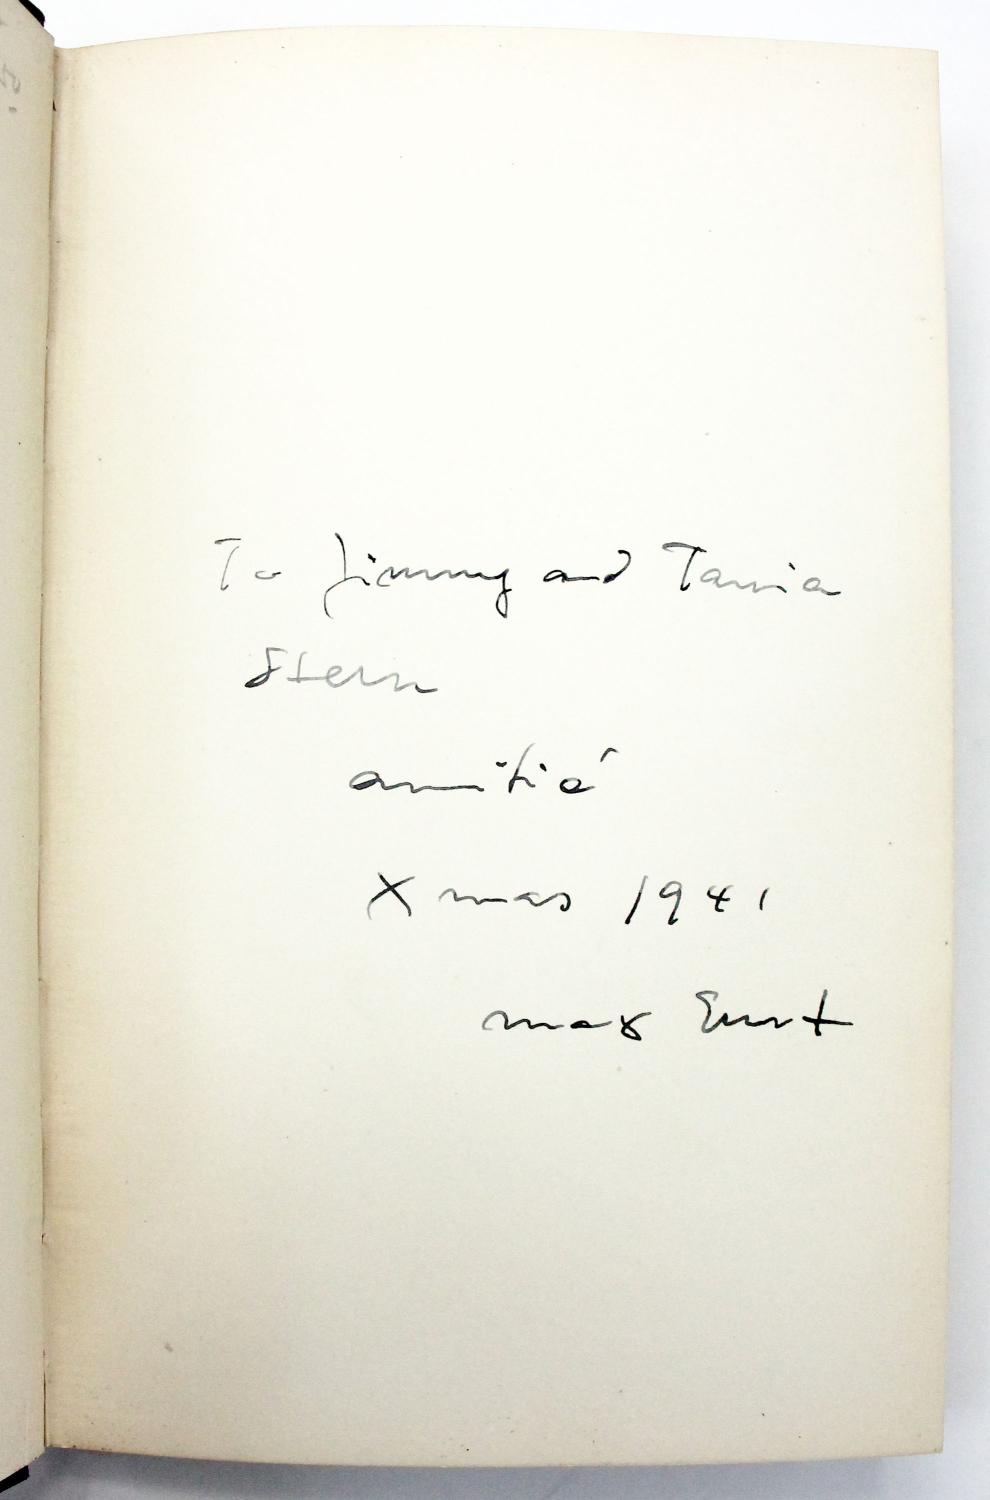 To Jimmy and Tania
Stern
amitié
Xmas 1941
max Ernst